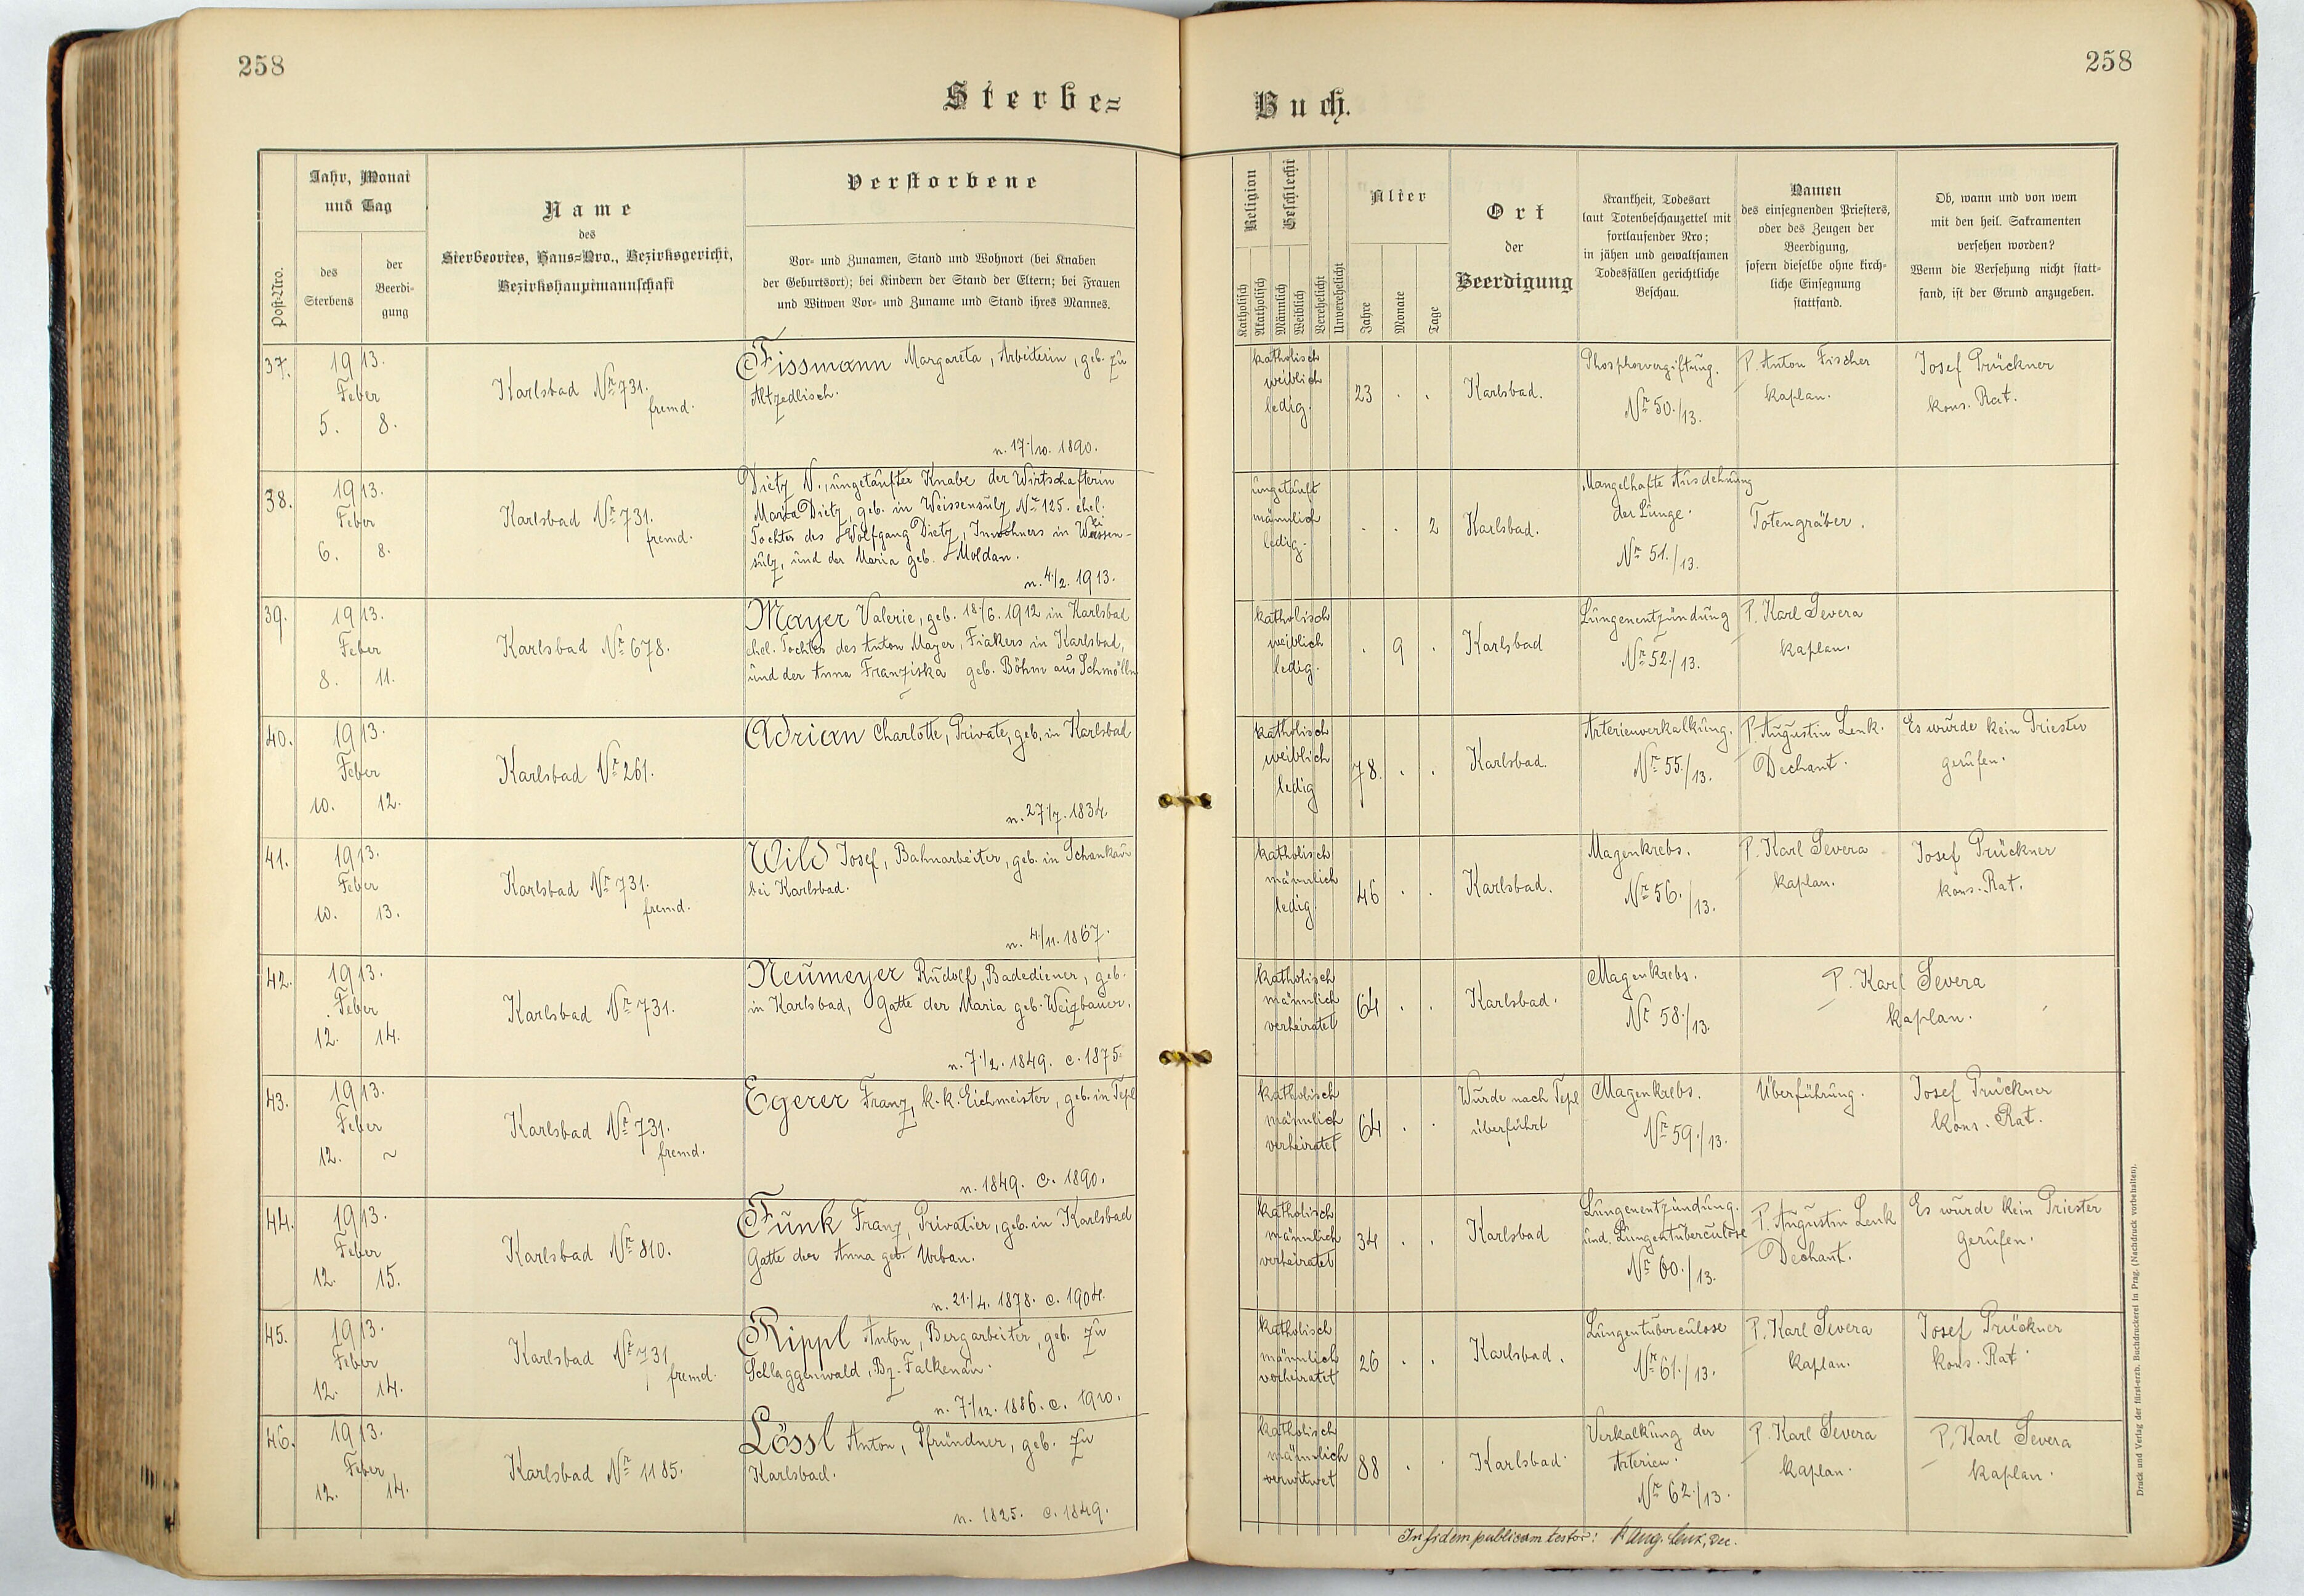 258
258
Sterbe=
Buch.
Post-Nro.
Jahr, Monat
und Tag
des
Sterbens
der
Beerdi-
gung
Name
des
Sterbeortes, Haus=Nro., Bezirksgericht,
Bezirkshauptmannschaft
Verstorbene
Vor- und Zunamen, Stand und Wohnort (bei Knaben
der Geburtsort); bei Kindern der Stand der Eltern; bei Frauen
und Witwen Vor- und Zuname und Stand ihres Mannes.
Religion
Katholisch
Akatholisch
Geschlecht
Männlich
Weiblich
Verehelicht
Unverehelicht
Alter
Jahre
Monate
Tage
Ort
der
Beerdigung
Krankheit, Todesart
laut Totenbeschauzettel mit
fortlaufender Nro;
in jähen und gewaltsamen
Todesfällen gerichtliche
Beschau.
Namen
des einsegnenden Priesters,
oder des Zeugen der
Beerdigung,
sofern dieselbe ohne kirch-
liche Einsegnung
stattfand.
Ob, wann und von wem
mit den heil. Sakramenten
versehen worden?
Wenn die Versehung nicht statt-
fand, ist der Grund anzugeben.
37.
1913.
Feber
5. 8.
Karlsbad Nr 731.
fremd.
Fissmann Margareta, Arbeiterin, geb. zu
Altzedlisch.
n. 17/10. 1890.
katholisch
weiblich
ledig.
23 . .
Karlsbad.
Phosphorvergiftung.
Nr 50./13.
P. Anton Fischer
Kaplan.
Josef Prückner
kons. Rat.
38.
1913.
Feber
6. 8.
Karlsbad Nr 731.
fremd.
Dietz N., ungetaufter Knabe der Wirtschafterin
Maria Dietz, geb. in Weissensulz Nr 125. ehel.
Tochter des Wolfgang Dietz, Inwohners in Weissen-
sulz, und der Maria geb. Moldan.
n. 4/2. 1913.
ungetauft
männlich
ledig.
. . 2
Karlsbad.
Mangelhafte Ausdehnung
der Lunge.
Nr 51./13.
Totengräber.
39.
1913.
Feber
8. 11.
Karlsbad Nr 678.
Mayer Valerie, geb. 18./6. 1912 in Karlsbad
ehel. Tochter des Anton Mayer, Fiakers in Karlsbad,
und der Anna Franziska geb. Böhm aus Schmölln
katholisch
weiblich
ledig.
. 9 .
Karlsbad
Lungenentzündung
Nr 52./13.
P. Karl Severa
Kaplan.
40.
1913.
Feber
10. 12.
Karlsbad Nr 261.
Adrian Charlotte, Private, geb. in Karlsbad
n. 27/7. 1834.
katholisch
weiblich
ledig
78. . .
Karlsbad.
Arterienverkalkung.
Nr 55./13.
P. Augustin Lenk.
Dechant.
Es wurde kein Priester
gerufen.
41.
1913.
Feber
10. 13.
Karlsbad Nr 731.
fremd.
Wild Josef, Bahnarbeiter, geb. in Schankau
bei Karlsbad.
n. 4/11. 1867.
katholisch
männlich
ledig.
46 . .
Karlsbad.
Magenkrebs.
Nr 56./13.
P. Karl Severa
Kaplan.
Josef Prückner
kons. Rat.
42.
1913.
Feber
12. 14.
Karlsbad Nr 731.
Neumeyer Rudolf, Badediener, geb.
in Karlsbad, Gatte der Maria geb. Weizbauer.
n. 7/2. 1849. c. 1875.
katholisch
männlich
verheiratet
64 . .
Karlsbad.
Magenkrebs.
Nr 58./13.
P. Karl Severa
Kaplan.
43.
1913.
Feber
12. ~
Karlsbad Nr 731.
fremd.
Egerer Franz, k.k. Eichmeister, geb. in Tepl
n. 1849. c. 1890.
katholisch
männlich
verheiratet
64 . .
Wurde nach Tepl
überführt
Magenkrebs.
Nr 59./13.
Überführung.
Josef Prückner
kons. Rat.
44.
1913.
Feber
12. 15.
Karlsbad Nr 810.
Funk Franz, Privatier, geb. in Karlsbad
Gatte der Anna geb. Urban.
n. 21./4. 1878. c. 1904.
katholisch
männlich
verheiratet
34 . .
Karlsbad
Lungenentzündung.
und Lungentuberculose
Nr 60./13.
P. Augustin Lenk
Dechant.
Es wurde kein Priester
gerufen.
45.
1913.
Feber
12. 14.
Karlsbad Nr 731
fremd.
Rippl Anton, Bergarbeiter, geb. zu
Schlaggenwald, Bz. Falkenau.
n. 7/12. 1886. c. 1910.
katholisch
männlich
verheiratet
26 . .
Karlsbad.
Lungentuberculose
Nr 61./13.
P. Karl Severa
Kaplan.
Josef Prückner
kons. Rat.
46.
1913.
Feber
12. 14.
Karlsbad Nr 1185.
Lössl Anton, Pfründner, geb. zu
Karlsbad.
n. 1825. c. 1849.
katholisch
männlich
verwitwet
88 . .
Karlsbad.
Verkalkung der
Arterien.
Nr 62./13.
P. Karl Severa
Kaplan.
P. Karl Severa
Kaplan.
In fidem publicam testor: P. Aug. Lenk, Dec.
Druck und Verlag der fürst-erzb. Buchdruckerei in Prag. (Nachdruck vorbehalten).